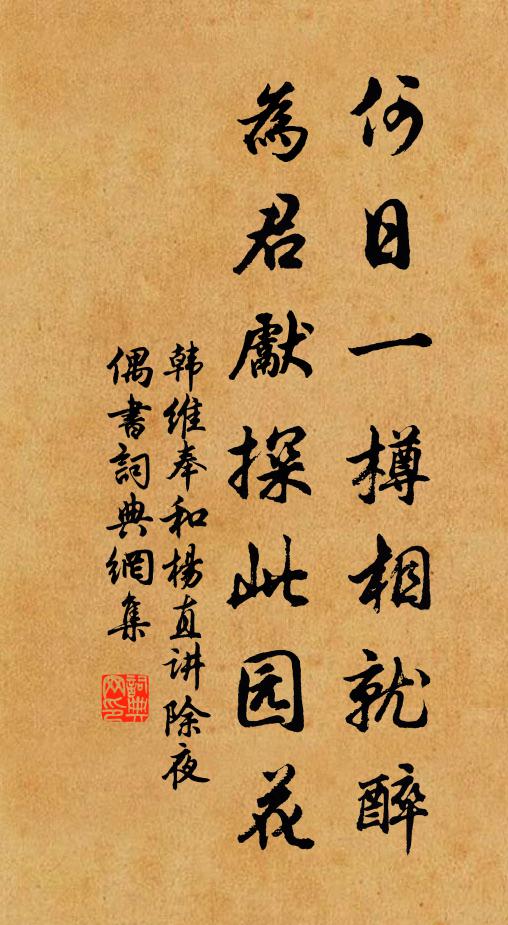 何日一樽相就醉
為君獻探此园花
韩維奉和楊直讲除夜
偶書詞典網集
詞典网印